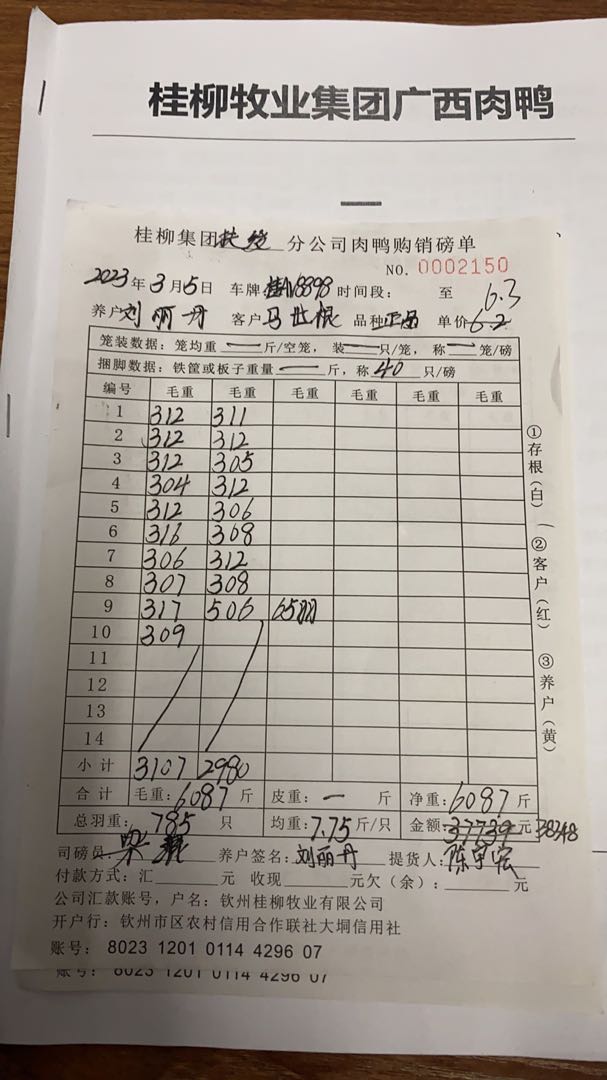 桂柳牧业集团广西肉鸭
桂柳集团扶绥分公司肉鸭购销磅单
NO. 0002150
2023年3月5日 车牌桂AV8898 时间段: 至 6.3
养户刘丽丹 客户马世根 品种正品 单价6.2
笼装数据: 笼均重一斤/空笼, 装一只/笼, 称一笼/磅
捆脚数据: 铁筐或板子重量一斤, 称40只/磅
编号 毛重 毛重 毛重 毛重 毛重 毛重
1 312 311
2 312 312
3 312 305
4 304 312
5 312 306
6 316 308
7 306 312
8 307 308
9 317 506 65羽
10 309
11
12
13
14
小计 3107 2980
合计 毛重:6087斤 皮重:一斤 净重:6087斤
总羽重:785只 均重:7.75斤/只 金额:37739元 38348
司磅员 梁 养户签名:刘丽丹 提货人:陈宇宏
付款方式: 汇 元 收现 元欠(余): 元
公司汇款账号, 户名: 钦州桂柳牧业有限公司
开户行: 钦州市区农村信用合作联社大垌信用社
账号: 8023 1201 0114 4296 07
账号: 8023 1201 0114 4296 07
①存根(白)
②客户(红)
③养户(黄)